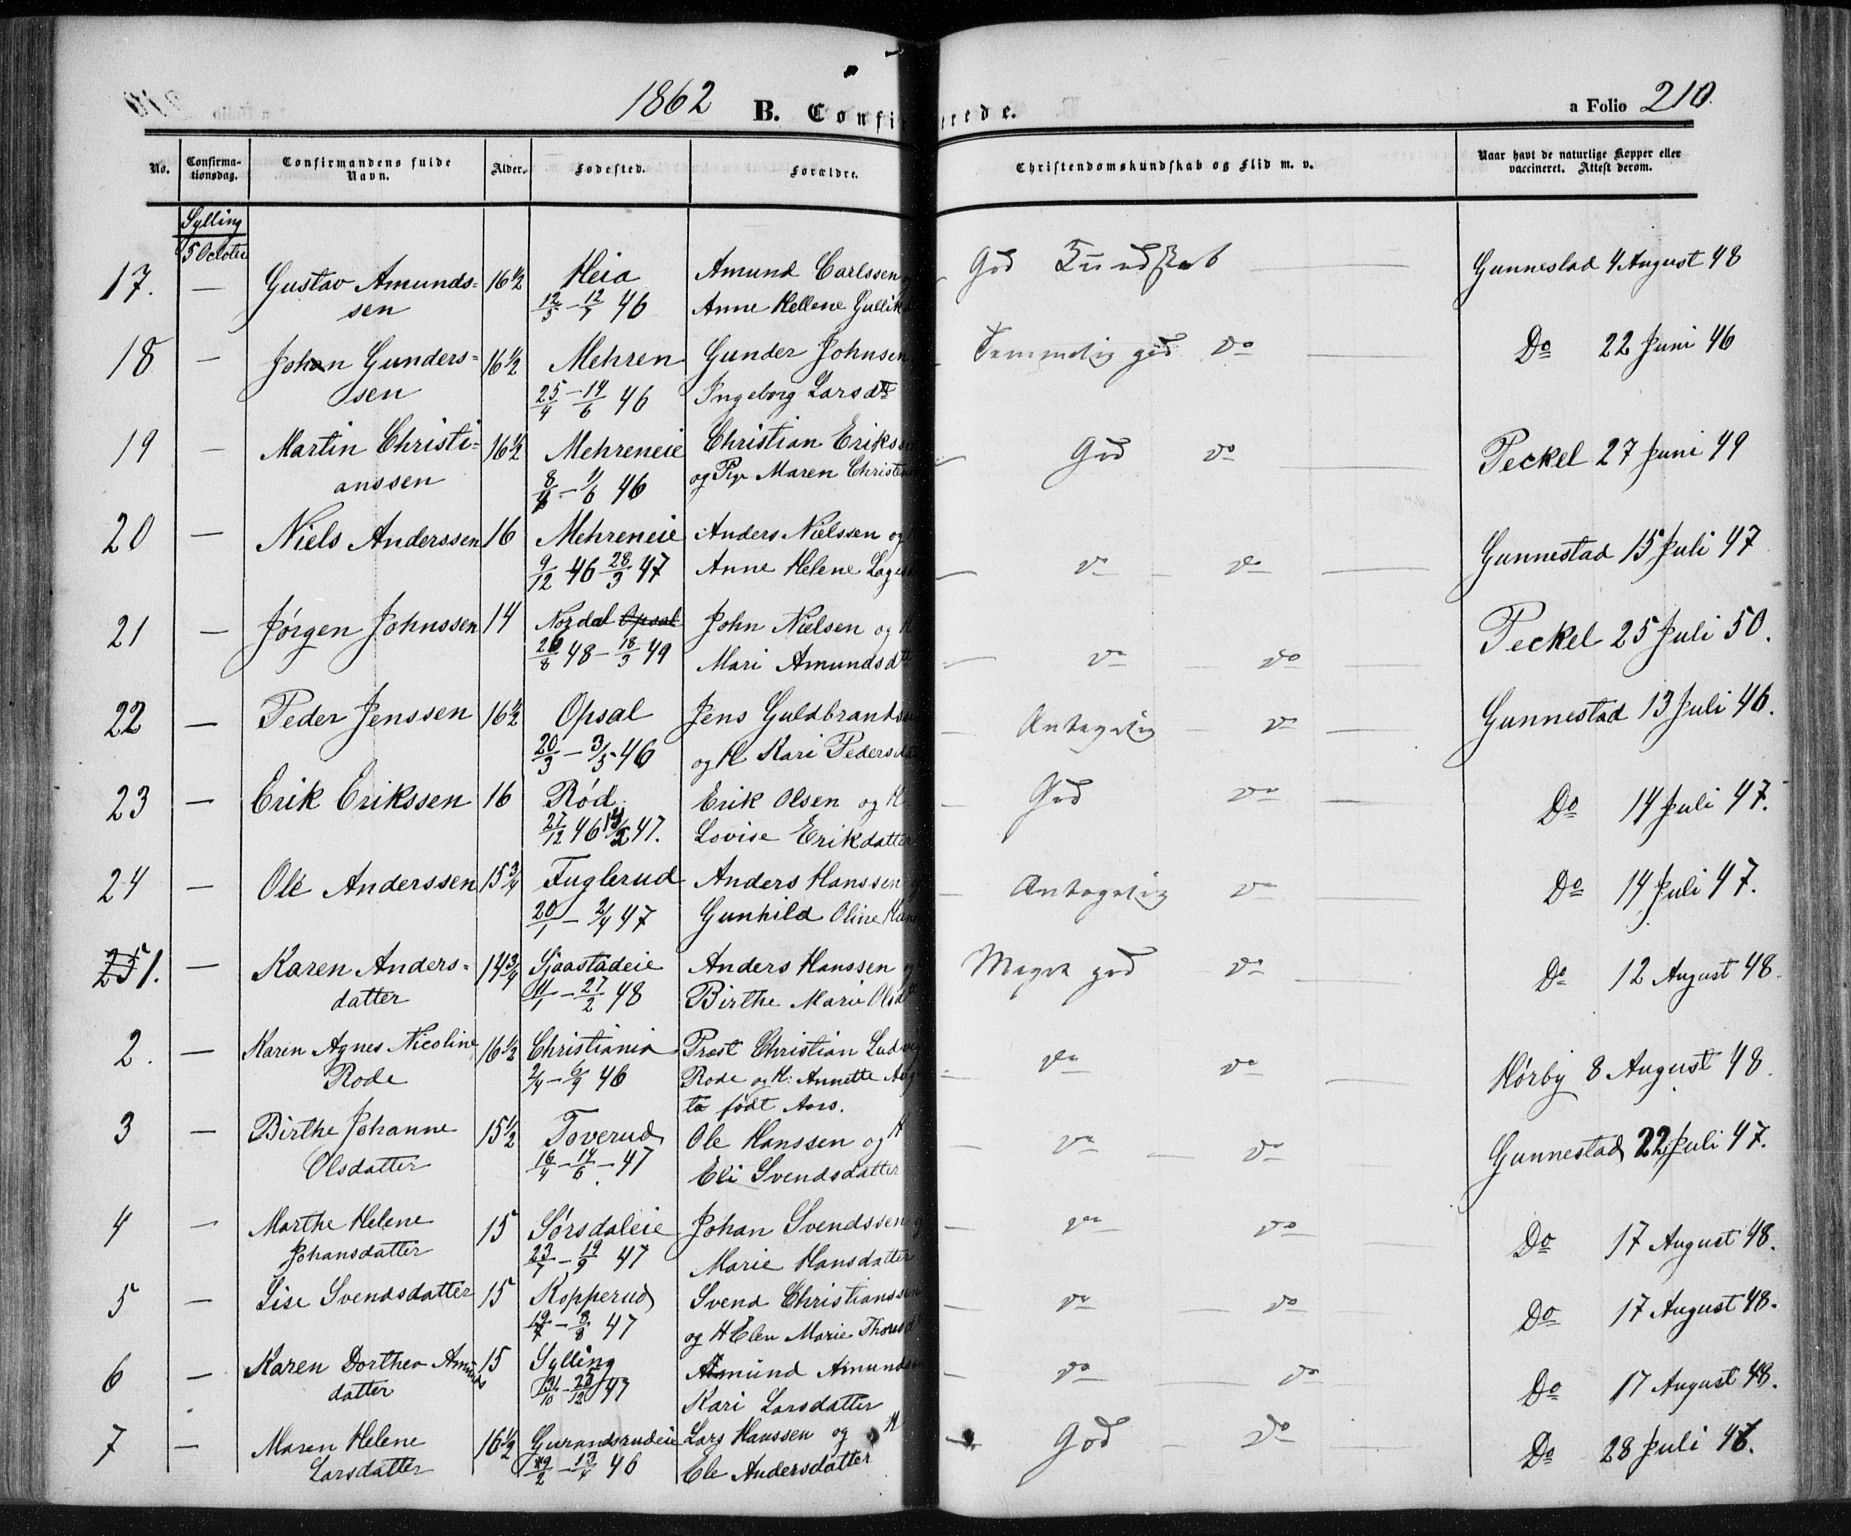 1862 B. Confirmerede. a Folio 210.
No. Confirmationsdag. Confirmandens fulde Navn. Alder. Fødested. Forældre. Christendomskundskab og Flid m. v. Naar havt de naturlige Kopper eller vaccineret. Attest derom.
Sylling
5 October
17. — Gustav Amunds- 16½ Heia Amund Carlssen God Kundskab — Gunnestad 4 August 48
sen 12/5 — 12/7 46 Anne Hellene Gullik
18 — Johan Gunders- 16½ Mehren Gunder Johnsen Temmelig god Do — Do 22 Juni 46
sen 25/4 — 14/6 46 Ingeborg Larsdtr
19 — Martin Christi- 16½ Mehreneie Christian Eriks — God Do Peckel 27 Juni 49
anssen 46 og Maren Christi
20 — Niels Anderssen 16 Mehreneie Anders Nielssen og — Do — Do — Gunnestad 15 Juli 47
9/12 46 28/3 47 Anne Helene
21 — Jørgen Johnssen 14 Nordal Opsal John Nielsen og H — Do — Do — Peckel 25 Juli 50.
26/8 48 — 18/3 49 Mari Amundsdtr
22 — Peder Jenssen 16½ Opsal Jens Guldbrands — Antagelig — Do — Gunnestad 13 Juli 46.
20/3 — 3/5 46 og H Kari Pedersd
23 — Erik Erikssen 16 Rød Erik Olsen og H. — God Do — Do 14 Juli 47.
27/12 46 14/2 47. Lovise Erikdatter
24 — Ole Anderssen 15¾ Fuglerud Anders Hanssen — Antagelig Do — Do 14 Juli 47.
20/1 — 2/4 47 Gunhild Oline Han
25 1. — Karen Anders- 14¾ Sjaastadeie Anders Hanssen Meget god Do — Do 12 August 48
datter 11/1 — 27/2 48 Birthe Marie Olsd
2. — Karen Agnes Nicoline 16½ Christiania Præst Christian Ludvig — Do Do — Hørby 8 August 48.
Rode 2/4 — 6/9 46 Rode og H: Annette Aug
ta født Aars.
3 — Birthe Johanne 15½ Toverud Ole Hanssen og H — Do — Do — Gunnestad 22 Juli 47.
Olsdatter 16/4 — 14/6 — 47 Eli Svendsdatter
4 — Marthe Helene 15 Sørsdaleie Johan Svendssen — Do — Do — Do 17 August 48.
Johansdatter 23/7 — 19/9 47 Marie Hansdatter
5 — Lise Svendsdatter 15 Kopperud Svend Christianssen — Do — Do — Do 17 August 48.
19/7 — 8/8 47 og H Elen Marie Thoresd
6 — Karen Dorthea Amunds 15 Sylling Amund Amunds — Do — Do — Do 17 August 48.
datter 31/10 — 26/12 47 Kari Larsdatter
7 — Maren Helene 16½ Gurandsrudeie Lars Hanssen og H — God — Do — Do 28 Juli 46.
Larsdatter 19/2 — 13/4 46 Ele Andersdatter